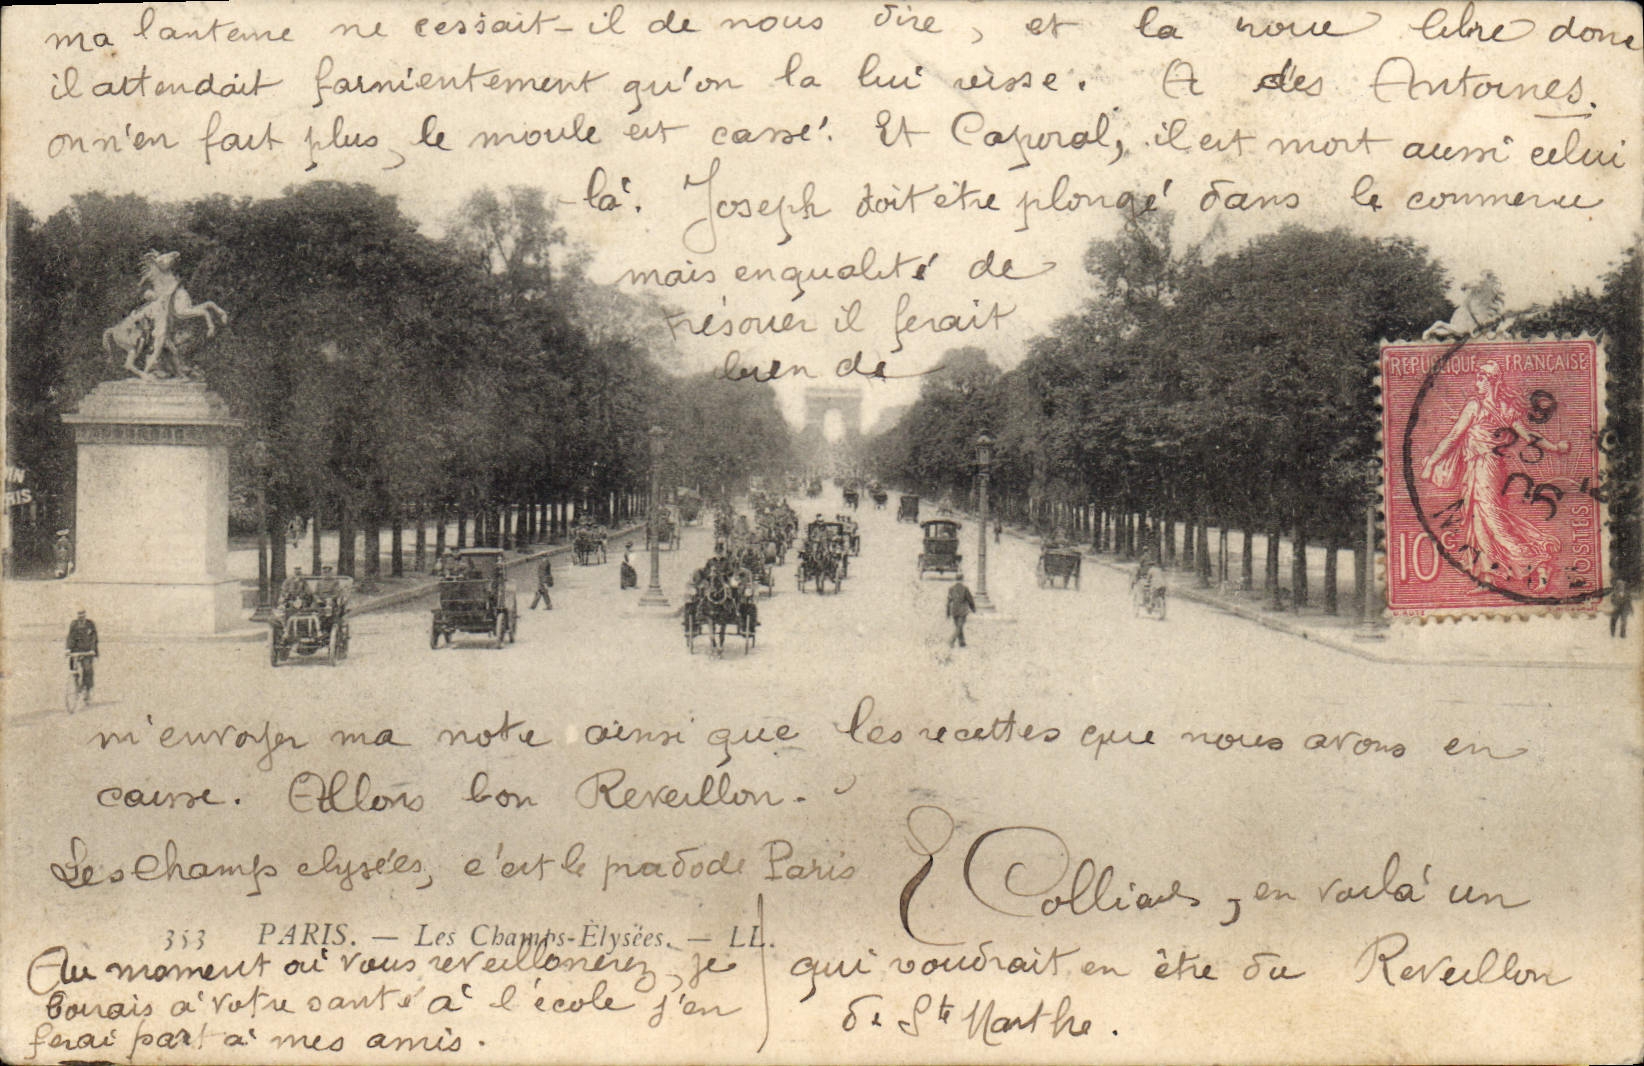 ma lanterne ne cessait-il de nous dire, et la roue libre donc
il attendait farnientement qu'on la lui visse. A des Antoines.
on n'en fait plus, le moule est cassé. Et Caporal, il est mort aussi celui
-là. Joseph doit être plongé dans le commerce
mais en qualité de
trésorier il ferait
bien de
REPUBLIQUE FRANÇAISE
10 c
POSTES
m'envoyer ma note ainsi que les recettes que nous avons en
caisse. Allons bon Reveillon.
Les Champs elysées, c'est le prado de Paris
E Colliard, en voilà un
qui voudrait en être du Reveillon
de Ste Marthe.
353 PARIS. — Les Champs-Élysées. — LL.
Au moment où vous reveillonerez, je
boirais à votre santé à l'école j'en
ferai part à mes amis.